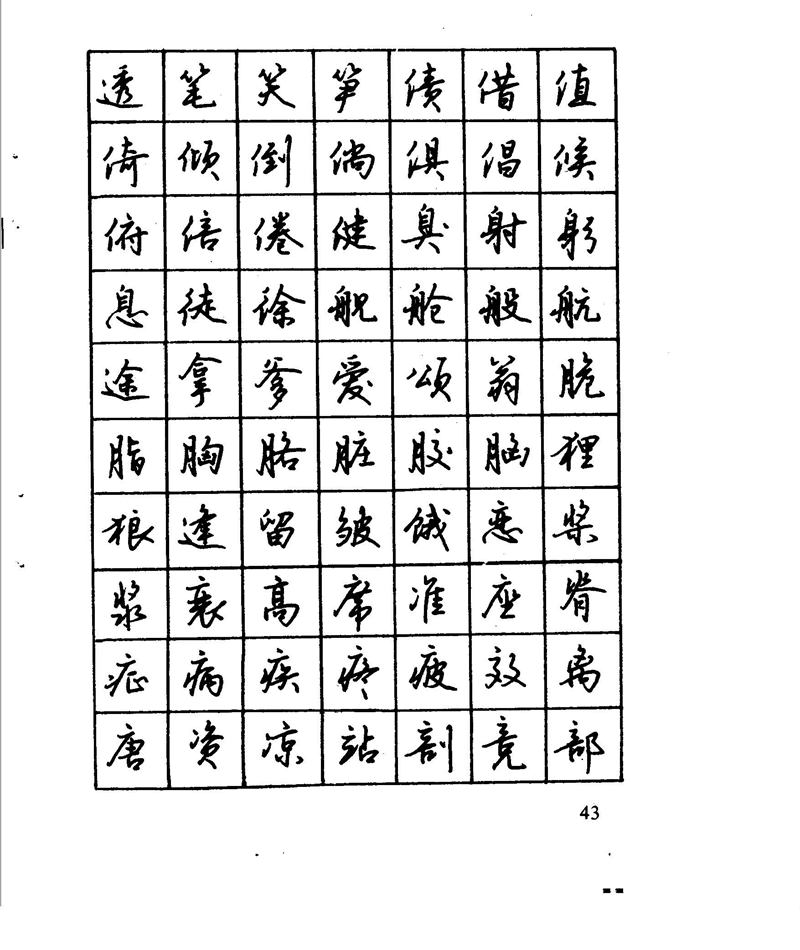 透 笔 笑 笋 债 借 值
倚 倾 倒 倘 俱 倡 候
俯 倍 倦 健 臭 射 躬
息 徒 徐 舰 舱 般 航
途 拿 爹 爱 颂 翁 脆
脂 胸 胳 脏 胶 脑 狸
狼 逢 留 皱 饿 恋 桨
浆 衰 高 席 准 座 脊
症 病 疾 疼 疲 效 离
唐 资 凉 站 剖 竞 部
43